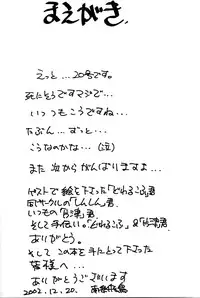 まえがき
えっと…20号です。
死にそうですマジで…
いつもこうですね…
たぶん…ずっと…
こうなのかな…(泣)
また次からがんばりますよ…
ゲストで絵を下さった「どれるこふ」君
同サークルの「しんしん」君
いつもの 君、
そして手伝い。「どれるこふ」& 君
ありがとう。
そしてこの本を手にとって下さった
皆様へ…
ありがとうございます
2002.12.20.